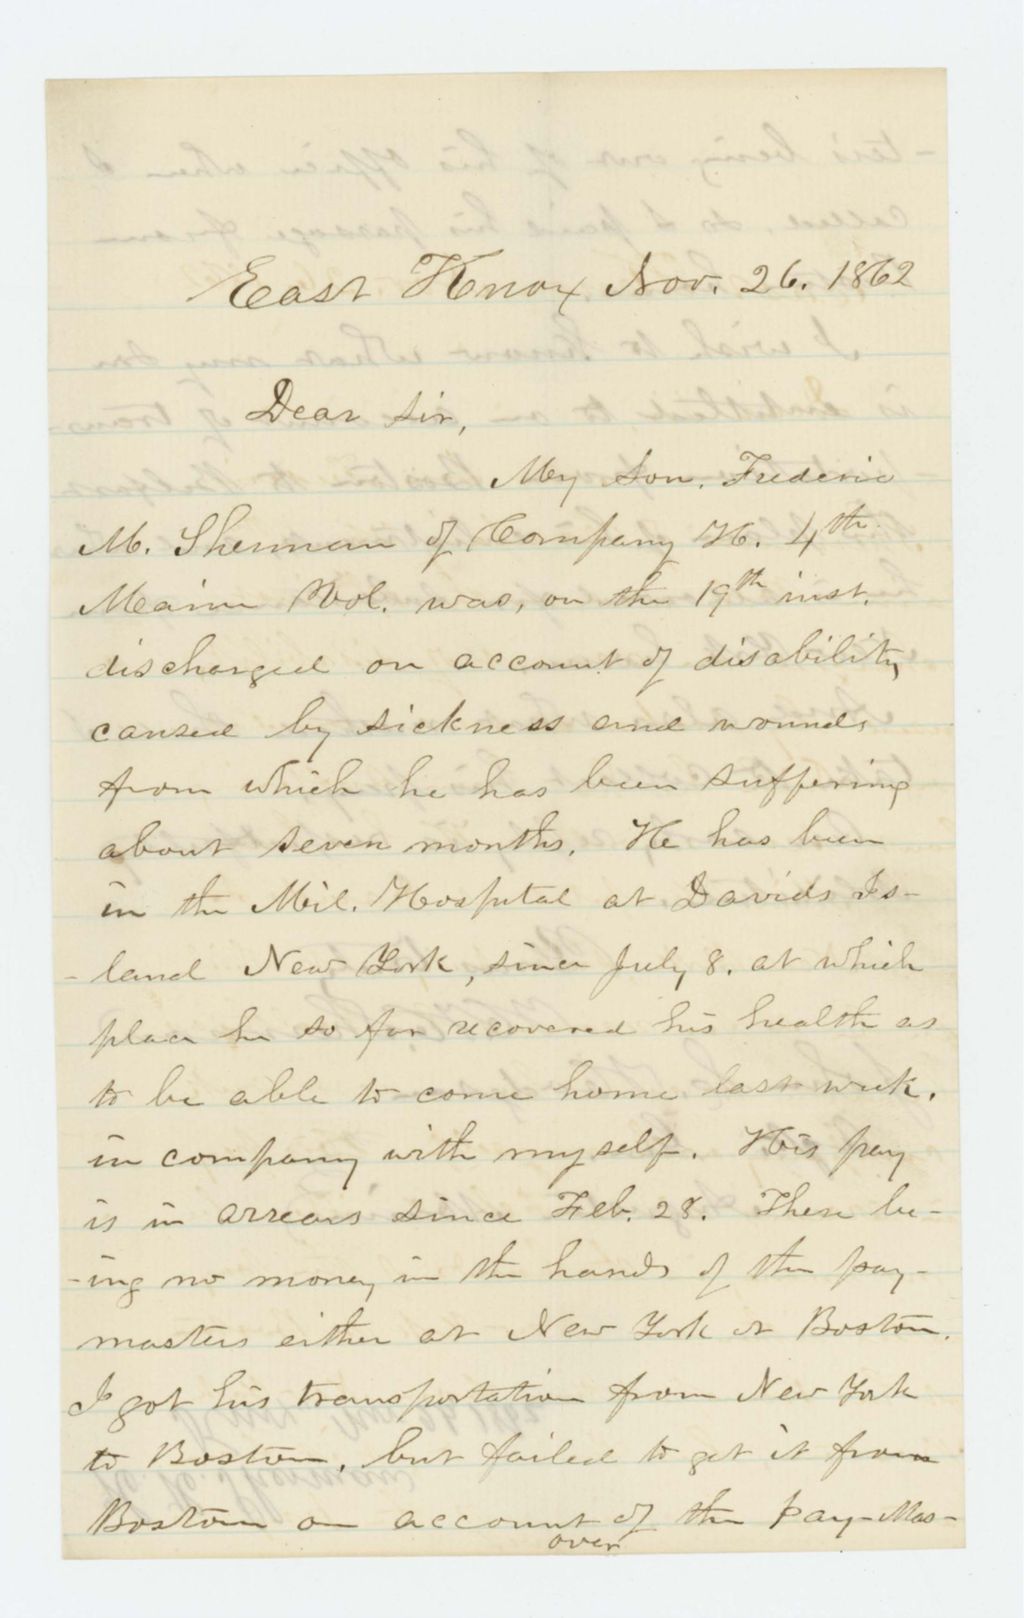 East Knox Nov. 26. 1862
Dear Sir,
My Son, Frederic
M. Sherman of Company H. 4th
Maine Vol. was, on the 19th inst.
discharged on account of disability
caused by sickness and wounds
from which he has been suffering
about seven months. He has been
in the Mil. Hospital at Davids Is-
-land New York, since July 8. at which
place he so far recovered his health as
to be able to come home last week.
in company with myself. His pay
is in arrears since Feb. 28. There be-
-ing no money in the hands of the pay-
masters either at New York or Boston.
I got his transportation from New York
to Boston, but failed to get it from
Boston on account of the Pay-Mas-
over